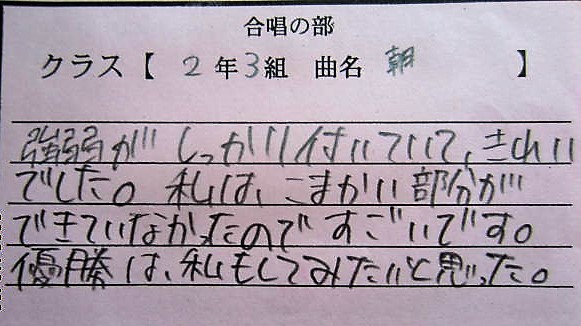 合唱の部
クラス【 2年3組 曲名 朝 】
強弱がしっかり付いていて、きれい
でした。私は、こまかい部分が
できていなかったのですごいです。
優勝は、私もしてみたいと思った。